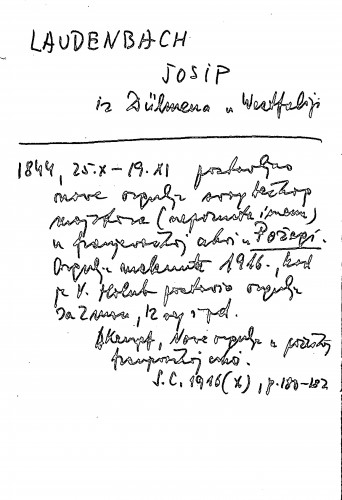 LAUDENBACH
JOSIP
iz Dülmena u Westfaliji
1844, 25.X – 19. XI postavljao
nove orgulje
majstora (nepoznata imena)
u franjevačkoj crkvi u Požegi.
Orgulje maknute 1916., kad
je V. Holub postavio orgulje
sa 2 man, 12 reg + ped.
Kempf, Nove orgulje u požeškoj
franjevačkoj crkvi.
S.C. 1916 (X), p. 180-182